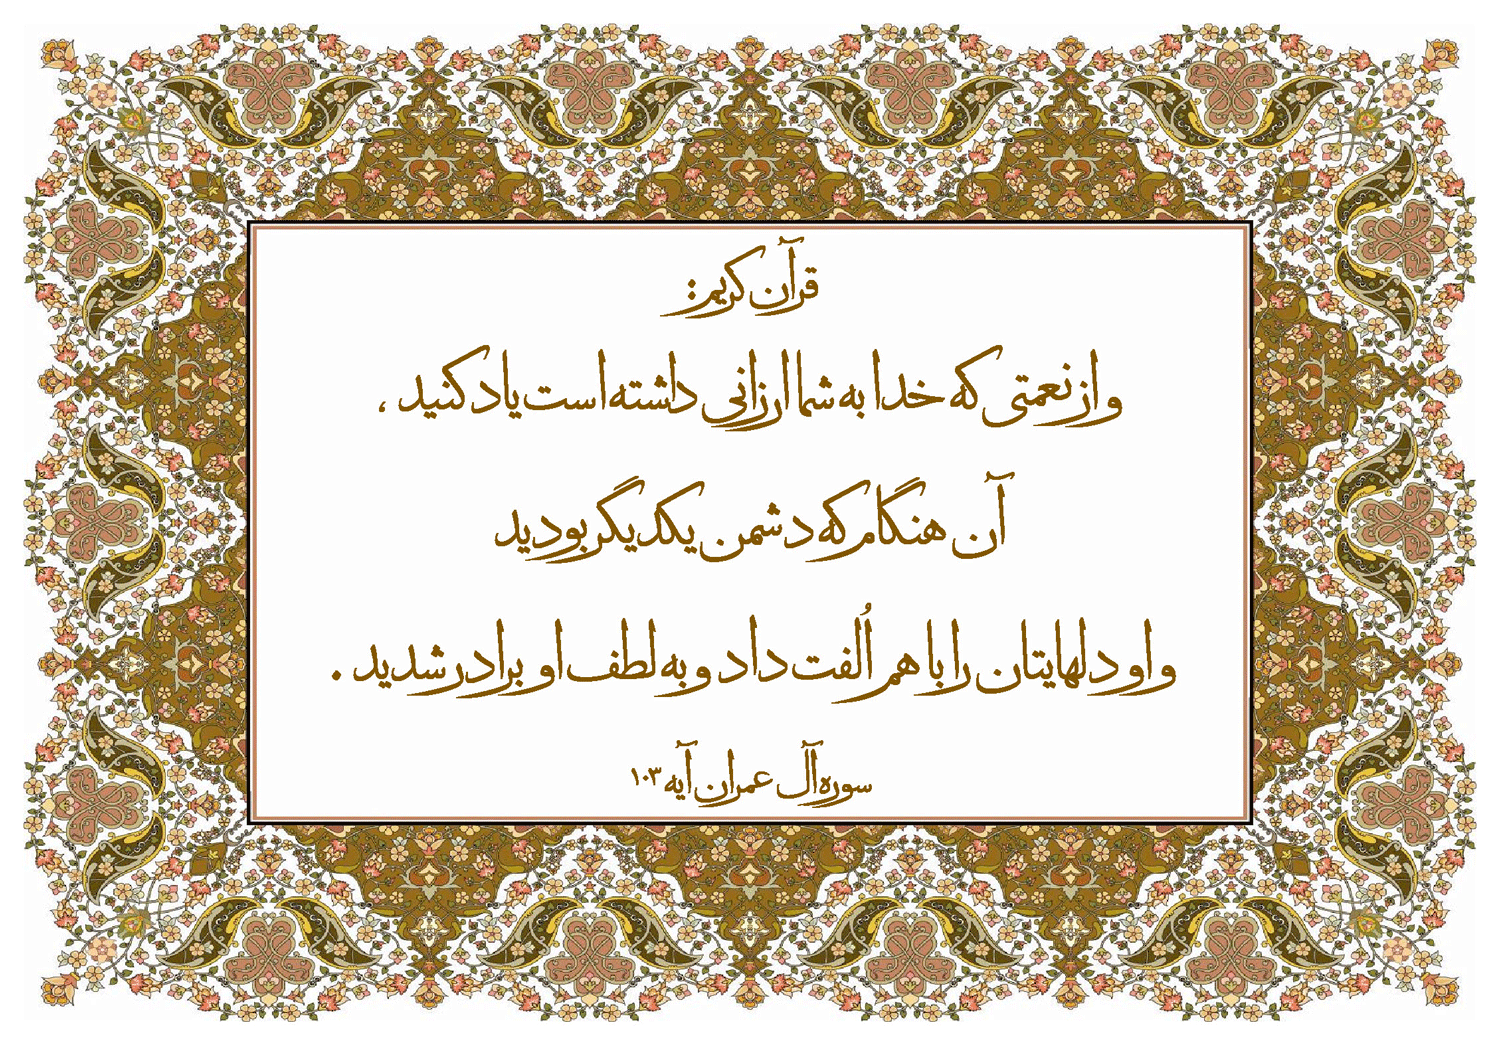 قرآن کریم:
و از نعمتی که خدا به شما ارزانی داشته است یاد کنید ،
آن هنگام که دشمن یکدیگر بودید
و او دلهایتان را با هم اُلفت داد و به لطف او برادر شدید .
سوره آل عمران آیه ۱۰۳